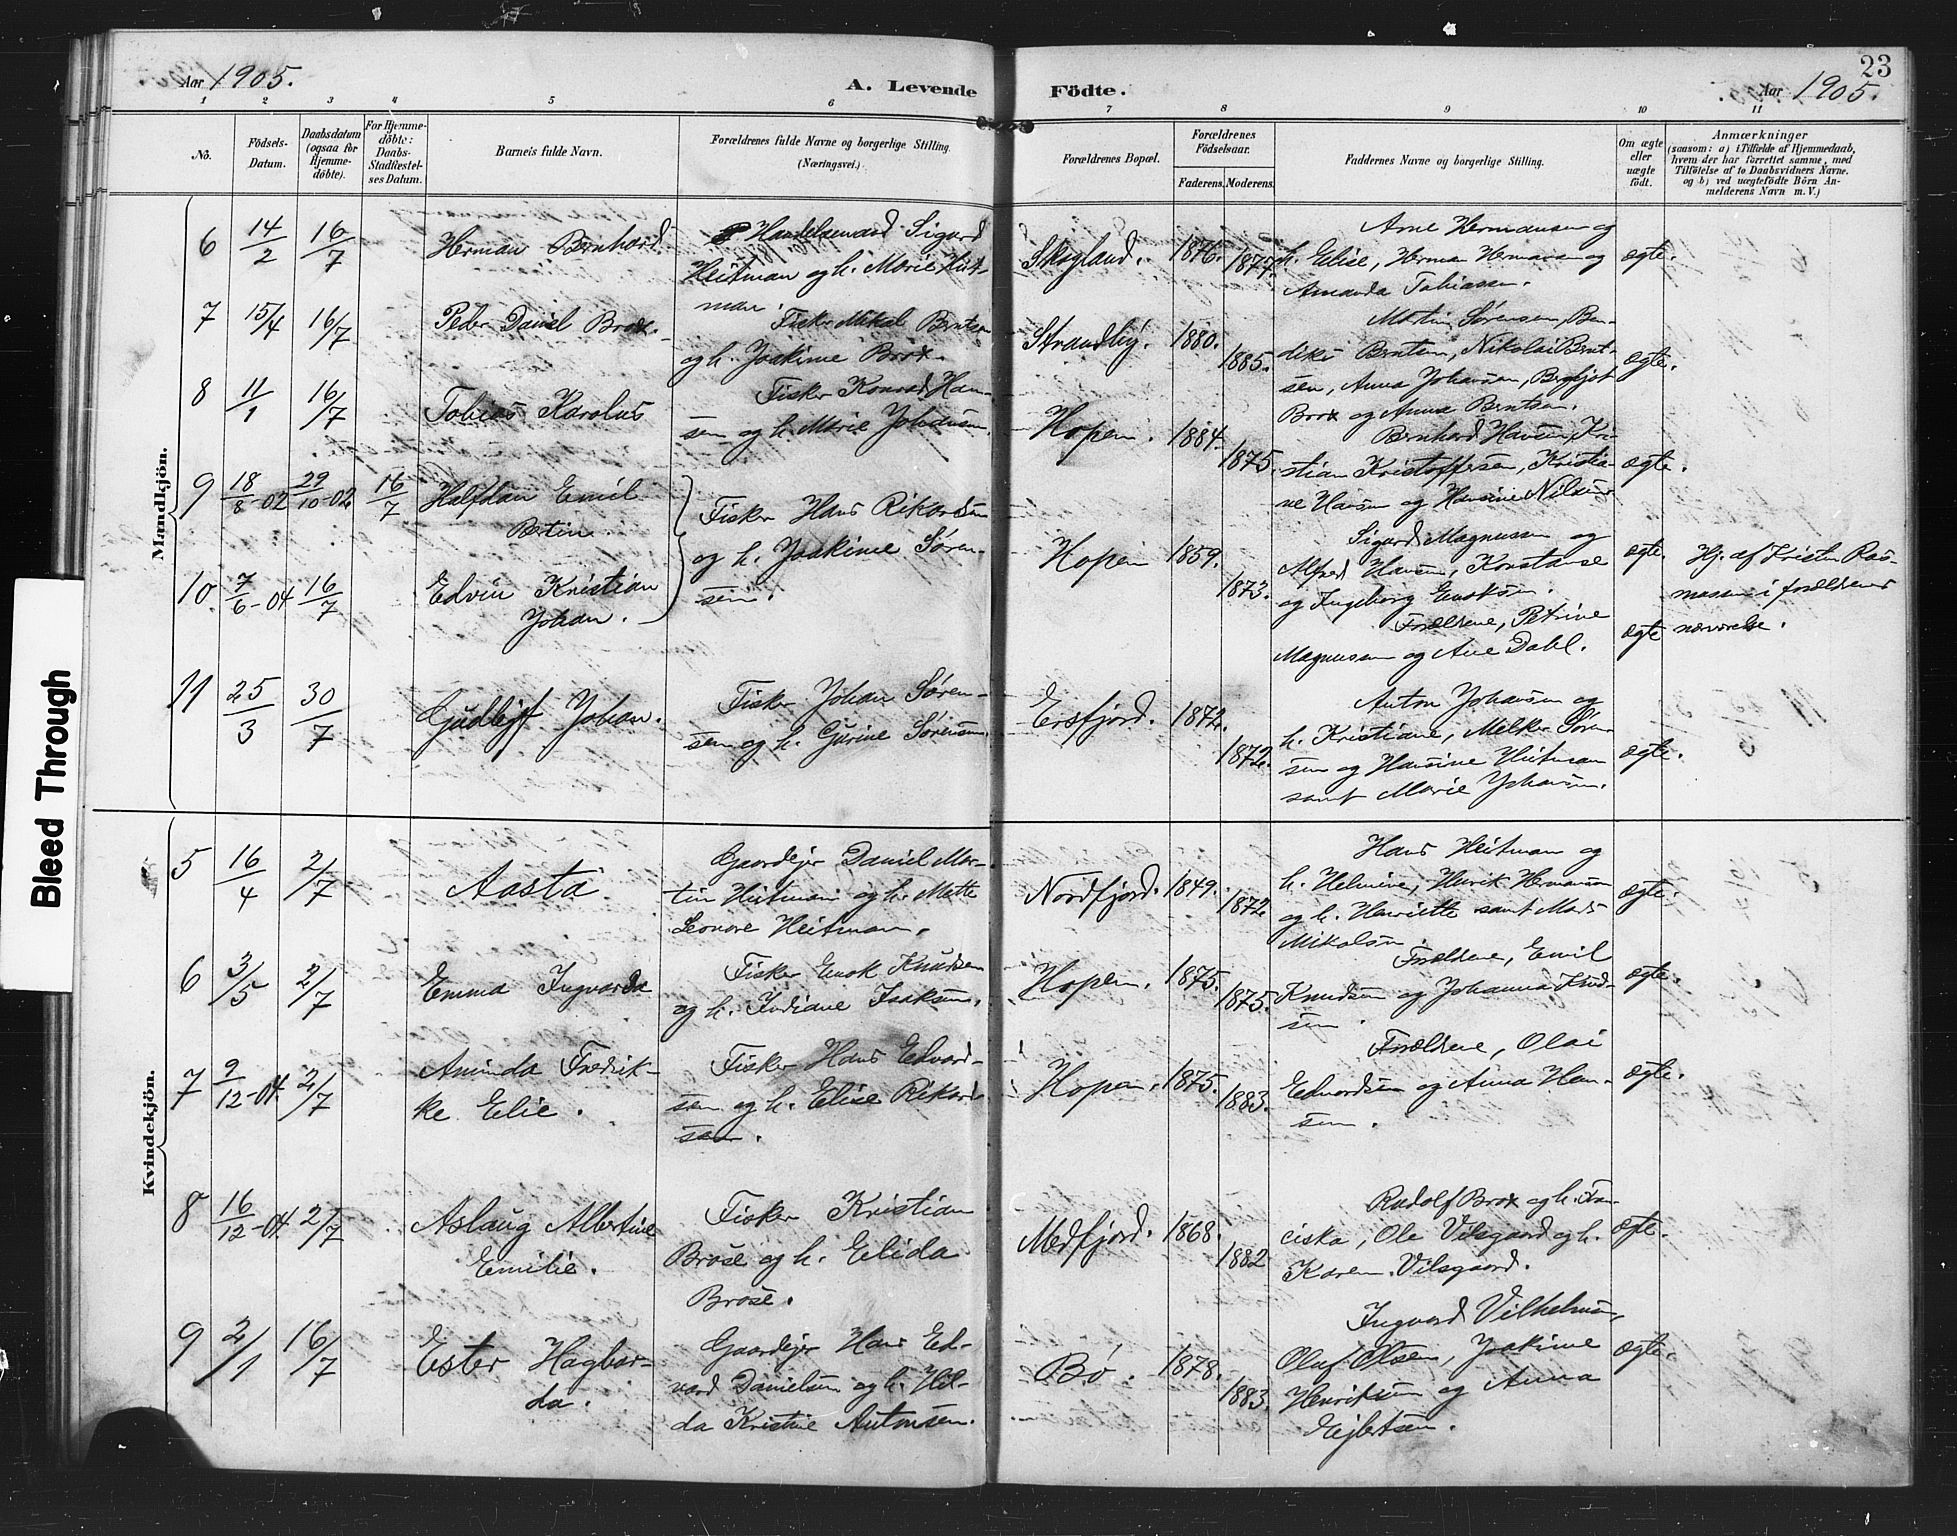 Aar 1905.
A. Levende
Födte.
Aar 1905.
23
1 2 3 4 5 6 7 8 9 10 11
No.
Födsels-
Datum.
Daabsdatum
(ogsaa for
Hjemme-
döbte).
For Hjemme-
döbte:
Daabs-
Stadfæstel-
ses Datum.
Barnets fulde Navn.
Forældrenes fulde Navne og borgerlige Stilling
(Næringsvei.)
Forældrenes Bopæl.
Forældrenes
Födselsaar.
Faderens. Moderens.
Faddernes Navne og borgerlige Stilling.
Om ægte
eller
uægte
födt.
Anmærkninger
(saasom: a) i Tilfælde af Hjemmedaab,
hvem der har forrettet samme, med
Tilföielse af to Daabsvidners Navne.
og b) ved uægtefödte Börn An-
melderens Navn m. V.)
Mandkjön.
6 14/2 16/7 Herman Bernhard
Handelsmand Sigurd
Heitman og h. Marie Heit-
man.
Skogland. 1876. 1877.
Arne Hermansen og
h. Elise, Herman Hermansen og
Amanda Tobiassen.
ægte.
7 15/4 16/7 Peder Daniel Brox.
Fisker Mikal Berntsen
og h. Joakime Brox.
Strandby. 1880. 1885.
Martin Sørensen, Ben-
dikt Berntsen, Nikolai Bernt-
sen, Anna Johansen, Bergljot
Brox og Anna Berntsen.
ægte.
8 11/1 16/7 Tobias Karolus
Fisker Konrad Han-
sen og h. Marie Johansen.
Hopen. 1884. 1875.
Bernhard Hansen, Kri-
stian Kristoffersen, Kristia-
ne Hansen og Hansine Nilsen
ægte.
9 18/8-02 29/10-02 16/7 Halfdan Emil
Bertin.
Fisker Hans Rikardsen
og h. Joakime Søren-
sen.
Hopen 1859. 1873.
Sigurd Magnussen og
Alfred Hansen, Konstanse
og Ingeborg Enoksen.
ægte.
Hj. af Kristen Ras-
mussen i forældrenes
nærværelse.
10. 7/6-04 16/7 Edvin Kristian
Johan.
Forældrene, Petrine
Magnussen og Ane Dahl.
ægte
11 25/3 30/7 Gudleif Johan.
Fisker Johan Søren-
sen og h. Gurine Sørensen.
Ersfjord. 1872. 1872.
Anton Johansen og
h. Kristiane, Melker Søren-
sen og Hansine Heitman
samt Marie Johansen.
ægte.
Kvindekjön.
5 16/4 2/7 Aasta
Gaardejer Daniel Mar-
tin Heitman og h. Mette
Leonore Heitman.
Nordfjord. 1849. 1872.
Hans Heitman og
h. Helmine, Henrik Hermansen
og h. Henriette samt Mads
Mikalsen
ægte.
6 3/5 2/7 Emma Ingvarda
Fisker Enok Knudsen
og h. Indiane Isaksen.
Hopen. 1875. 1875.
Forældrene, Emil
Knudsen og Johanna Knud-
sen.
ægte.
7 9/12-04. 2/7 Aminda Fredrik-
ke Elie.
Fisker Hans Edvard-
sen og h. Elise Rikard-
sen.
Hopen. 1875. 1883.
Forældrene, Olai
Edvardsen og Anna Han-
sen.
ægte.
8 16/12-04. 2/7 Aslaug Albertine
Emilie.
Fisker Kristian
Brose og h. Elida
Brose.
Medfjord. 1868. 1882
Rudolf Brox og h. Fran-
ciska, Ole Vilsgaard og h.
Karen Vilsgaard.
ægte.
9 2/1 16/7 Ester Hagbar-
da.
Gaardejer Hans Ed-
vard Danielsen og h. Hil-
da Kristine Antonsen.
Bø. 1878. 1883.
Ingvard Vilhelmsen,
Oluf Olsen, Joakime
Henriksen og Anna
Ejlertsen.
ægte.
Bleed Through